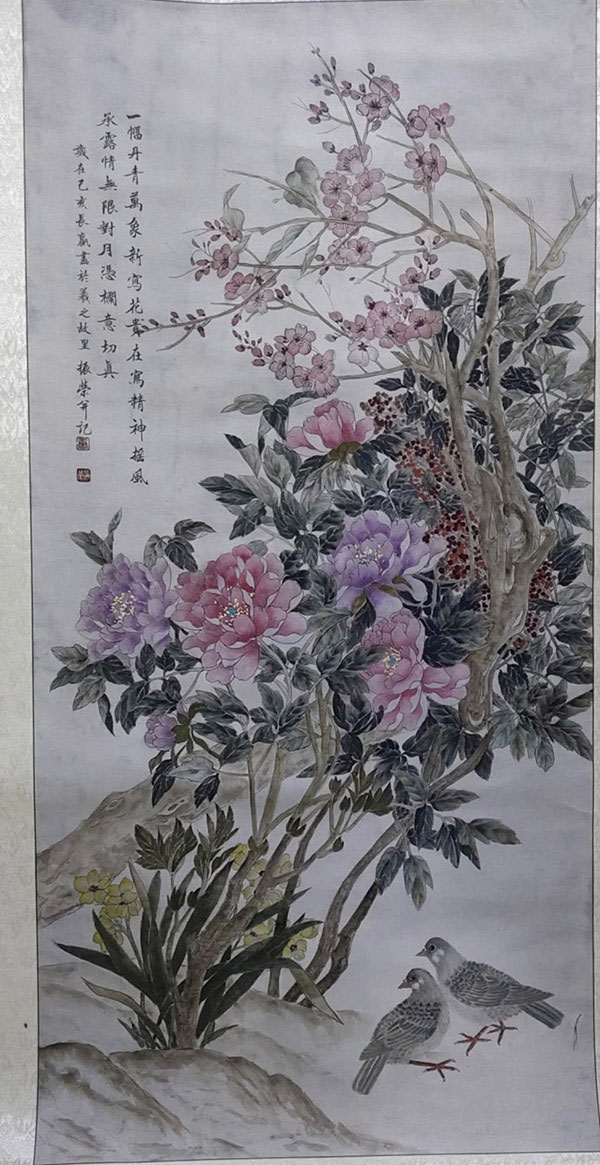 一幅丹青萬象新寫花貴在寫精神摇風
承露情無限對月憑欄意切真
歲在己亥長嬴畫於羲之故里 振榮并記